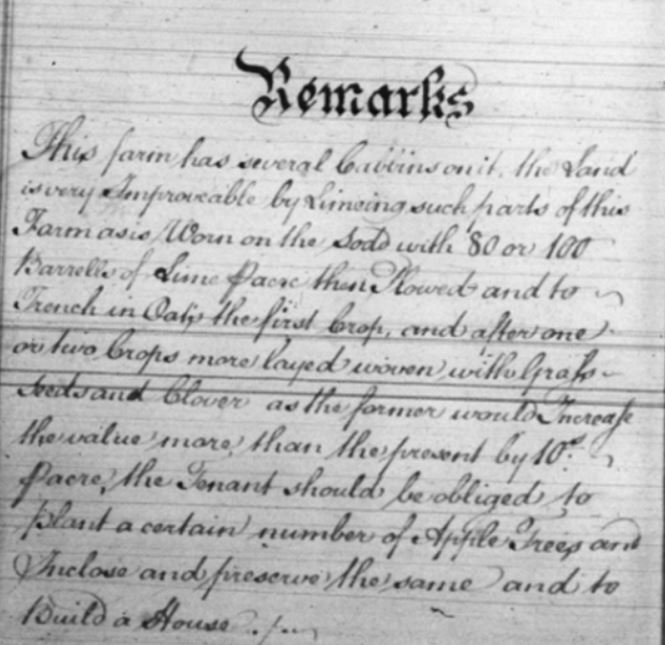 Remarks
This farm has several Cabbins on it. the Land
is very Improveable by Limeing such parts of this
Farm as is Worn on the Sodd with 80 or 100
Barrells of Lime Pacre then Plowed and to
Trench in Oats the first Crop, and after one
or two Crops more layed down with Grass
Seeds and Clover as the former would Increase
the value more than the present by 10s
Pacre, the Tenant should be obliged to
plant a certain number of Apple Trees and
Inclose and preserve the same and to
Build a House